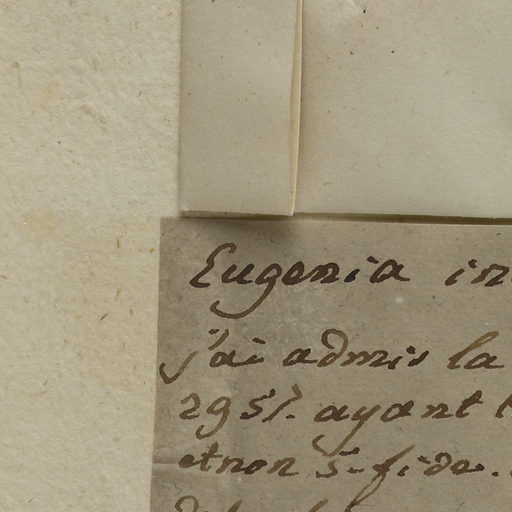 Eugenia in
j'ai admis la
2957. ayant
et non 5-fide.